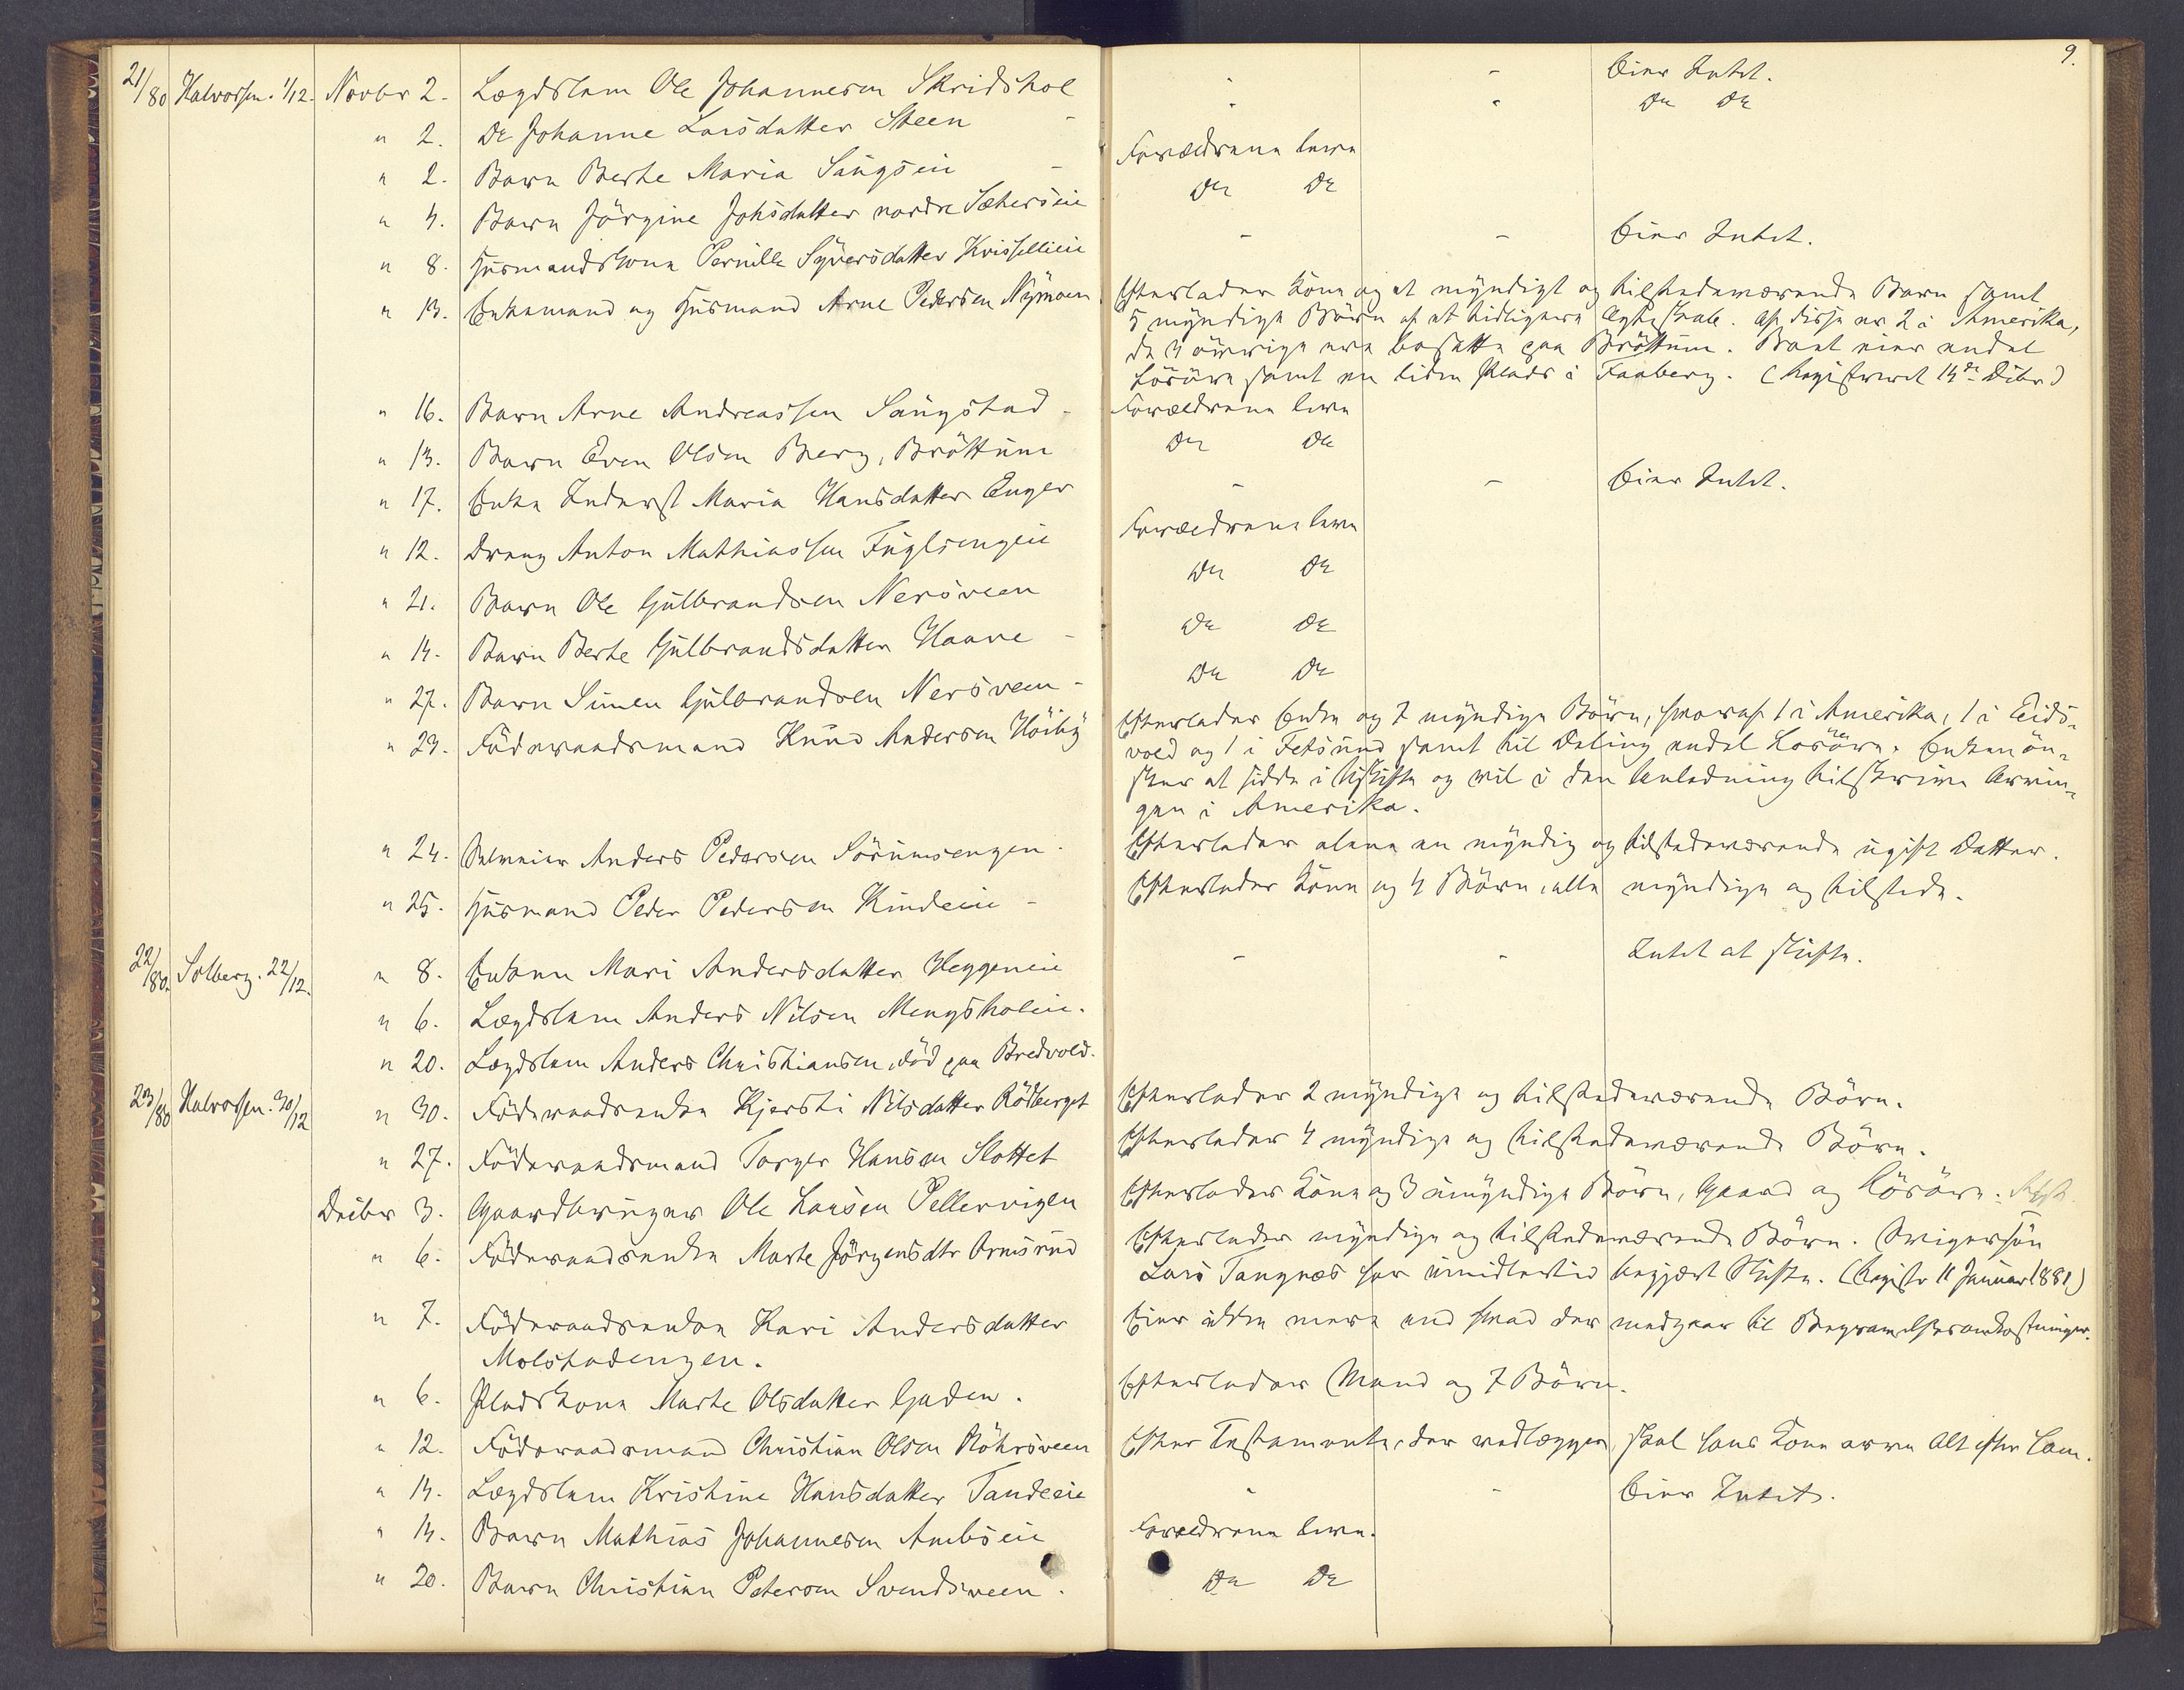 9.
21/80 Halvorsen. 1/12. Novbr 2. Lægdslem Ole Johannesen Skridshol - - Eier Intet.
" 2. Do Johanne Larsdatter Steen - - - Do Do
" 2. Barn Berte Maria Saugseie - Forældrene leve
" 4. Barn Jörgine Johsdatter nordre Sæherseie Do Do
" 8. Husmandskone Pernille Syversdatter Kvisllieie - - Eier Intet.
" 13. Enkemand og Husmand Arne Pedersen Nymoen. Efterlader Kone og et myndigt og tilstedeværende Barn samt
5 myndige Börn af et tidligere Ægteskab. Af disse er 2 i Amerika,
de 3 övrige ere bosatte paa Bröttum. Boet eier endel
Lösöre samt en liden Plads i Faaberg. (Registreret 14de Dcbr)
" 16. Barn Arne Andreassen Saugstad - Forældrene leve
" 13. Barn Even Olsen Berg, Bröttum Do Do
" 17. Enke Inderst Maria Hansdatter Enger - - Eier Intet.
" 12. Dreng Anton Mathiassen Fuglsengeie Forældrene leve
" 21. Barn Ole Gulbrandsen Nersveen Do Do
" 14. Barn Berte Gulbrandsdatter Haave - Do Do
" 27. Barn Simen Gulbrandsen Nersveen - Do Do
" 23. Föderaadsmand Knud Andersen Höiby Efterlader Enke og 7 myndige Börn, hvoraf 1 i Amerika, 1 i Eids-
vold og 1 i Fetsund samt til Deling endel Lösöre. Enken ön-
sker at sidde i Uskifte og vil i den Anledning tilskrive Arvin-
gen i Amerika.
" 24. Selveier Anders Pedersen Sörumsengen. Efterlader alene en myndig og tilstedeværende ugift Datter.
" 25. Husmand Peder Pedersen Kindeie - Efterlader Kone og 4 Börn, alle myndige og tilstede.
22/80. Solberg. 22/12. " 8. Enken Mari Andersdatter Heggeneie - - Intet at skifte.
" 6. Lægdslem Anders Nilsen Mengsholeie.
" 20. Lægdslem Anders Christiansen, död paa Bredvold.
23/80 Halvorsen. 30/12 " 30. Föderaadsenke Kjersti Nilsdatter Rödberget Efterlader 2 myndige og tilstedeværende Börn.
" 27. Föderaadsmand Torger Hansen Slottet Efterlader 4 myndige og tilstedeværende Börn.
Dcibr 3. Gaardbruger Ole Larsen Pellervigen Efterlader Kone og 3 umyndige Börn, Gaard og Lösöre.
" 6. Föderaadsenke Marte Jörgensdtr Arnesrud Efterlader myndige og tilstedeværende Börn. Svigersön
Lars Tangnæs har imidlertid begjært Skifte. (Registr 11 Januar 1881)
" 7. Föderaadsenken Kari Andersdatter Eier ikke mere end hvad der medgaar til Begravelsesomkostninger.
Molstadengen.
" 6. Pladskone Marte Olsdatter Gaden. Efterlader Mand og 7 Börn.
" 12. Föderaadsmand Christian Olsen Röhrsveen Efter Testamente, der vedlægges, skal hans Kone arve Alt efter ham.
" 14. Lægdslem Kristine Hansdatter Tandeeie - - Eier Intet.
" 14. Barn Mathias Johannesen Ambseie Forældrene leve.
" 20. Barn Christian Petersen Svendsveen. Do Do